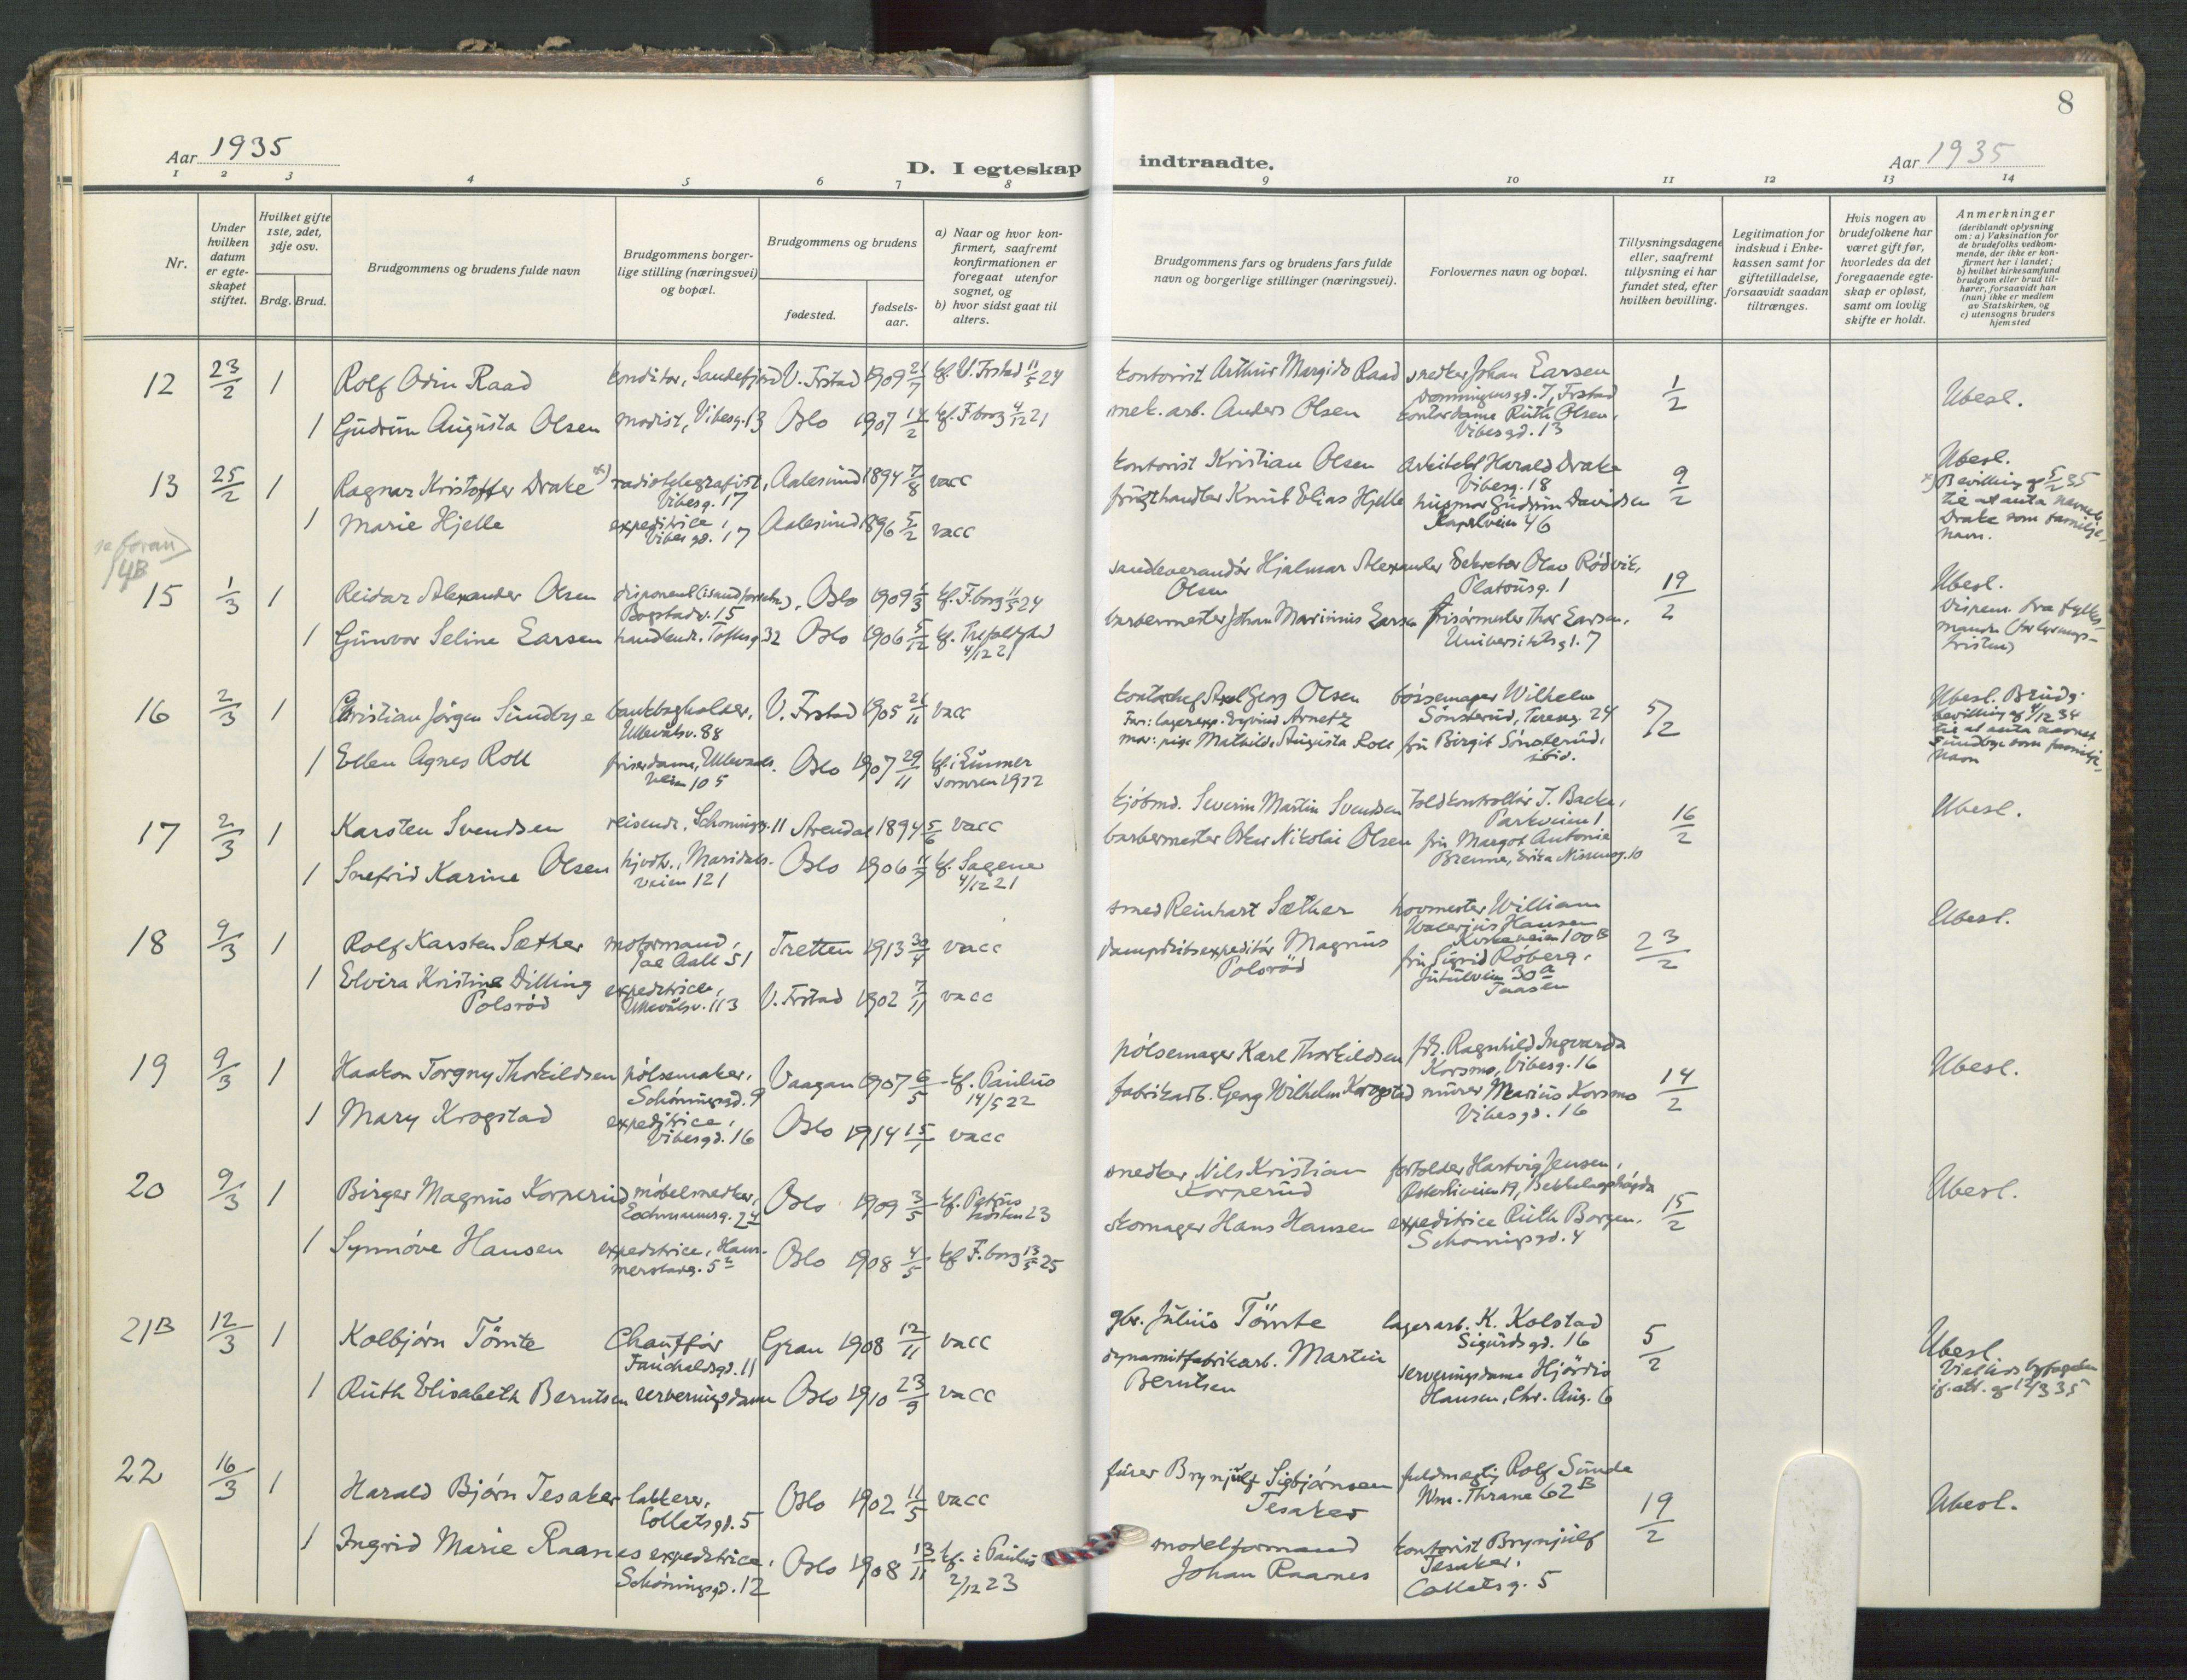 8
Aar 1935
D. I egteskap indtraadte.
Aar 1935
1 2 3 4 5 6 7 8 9 10 11 12 13 14
Nr.
Under hvilken datum er egteskapet stiftet.
Hvilket gifte 1ste, 2det, 3dje osv.
Brdg. Brud.
Brudgommens og brudens fulde navn
Brudgommens borgerlige stilling (næringsvei) og bopæl.
Brudgommens og brudens
fødested.
fødselsaar.
a) Naar og hvor konfirmert, saafremt konfirmationen er foregaat utenfor sognet, og
b) hvor sidst gaat til alters.
Brudgommens fars og brudens fars fulde navn og borgerlige stillinger (næringsvei).
Forlovernes navn og bopæl.
Tillysningsdagene eller, saafremt tillysning ei har fundet sted, efter hvilken bevilling.
Legitimation for indskud i Enkekassen samt for giftetilladelse, forsaavidt saadan tiltrænges.
Hvis nogen av brudefolkene har været gift før, hvorledes da det foregaaende egteskap er opløst, samt om lovlig skifte er holdt.
Anmerkninger
(deriblandt oplysning om: a) Vaksination for de brudefolks vedkommende, der ikke er konfirmert her i landet;
b) hvilket kirkesamfund brudgom eller brud tilhører, forsaavidt han (hun) ikke er medlem av Statskirken, og
c) utensogns bruders hjemsted
12 23/2 1 Rolf Odin Raad konditor, Sandefjord V. Frstad 1909 21/7 kf. V. Frstad 11/5 24 kontorist Arthur Margido Raad snedker Johan Larsen
Dronningensgd. 7, Frstad 1/2 Ubesl.
1 Gudrun Augusta Olsen modist, Vibesg. 13 Oslo 1907 14/2 kf. F.borg 4/12 21 mek. arb. Anders Olsen kontordame Ruth Olsen,
Vibesgd. 13
13 25/2 1 Ragnar Kristoffer Drake x) radiotelegrafist, Aalesund 1894 7/8 vacc kontorist Kristian Olsen Arkitekt Harald Drake
Vibesg. 17 Vibesg. 18 9/2 Ubesl.
x) Bevilling af 5/2 35
til at anta navnet
Drake som familje-
navn.
1 Marie Hjelle expeditrice, Aalesund 1896 5/2 vacc frugthandler Knut Elias Hjelle husmor Gudrun Davidsen
Vibesgd. 17 Kapelveien 46
se foran
14B
15 1/3 1 Reidar Alexander Olsen disponent Oslo 1909 kf. F.borg 11/5 24 sandleverandør Hjalmar Alexander Sekretær Olav Rødvik,
Bogstadv. 15 Olsen Platousg. 1 19/2 Ubesl.
Dispens. fra fylkes-
manden
1 Gunvor Seline Larsen handlende. Toftesg. 32 Oslo 1906 5/12 kf. Trefoldighed barbermester Johan Marinius Larsen frisørmester Thor Larsen,
4/12 21 Universitetsgt. 7
16 2/3 1 Christian Jörgen Sundbye bankbogholder, V. Frstad 1905 21/11 vacc kontorchef Axel Georg Olsen børsemager Wilhelm
Ullevålsv. 88 Sønsterud, Teresesg. 24 5/2 Ubesl. Brudg.
bevilling af 4/12 34
til at anta navnet
Sundbye som familje-
navn
1 Ellen Agnes Roll frisørdame, Ullevaals- Oslo 1907 29/11 kf. i Lunner Far: lagerexp. Eyvind Arnetz
veien 105 sommeren 1922 mor: pige Mathilde Augusta Roll fru Birgit Sønsterud,
ibid.
17 2/3 1 Karsten Svendsen reisende, Schøningsg. 11 Arendal 1894 5/6 vacc kjøbmd. Severin Martin Svendsen Toldkontrollør J. Backe,
Parkveien 1 16/2 Ubesl.
1 Snefrid Karine Olsen Maridals- Oslo 1906 kf. Sagene barbermester Oskar Nikolai Olsen fru Margot Antonie
veien 121 4/12 21 Brenne, Erika Nissensg. 10
18 9/3 1 Rolf Karsten Sæther motormand, Tretten 1913 30/4 vacc smed Reinhart Sæther hovmester William
Jac Aall 51 Walerius Hansen
Kirkeveien 100B 23/2 Ubesl.
1 Elvira Kristine Dilling expeditrice, V. Frstad 1902 7/11 vacc dampskibsexpeditør Magnus fru Sigrid Røberg,
Polsrød Ullevålsv. 113 Polsrød Jutulveien 30a
Taasen
19 9/3 1 Haakon Torgny Thorkildsen pølsemaker, Vaagan 1907 6/5 kf. Paulus pølsemager Karl Thorkildsen frk. Ragnhild Ingvarda
Schøningsgd. 9 14/5 22 Korsmo, Vibesg. 16 14/2 Ubesl.
1 Mary Krogstad expeditrice, Oslo 1914 vacc fabrikarb. Georg Wilhelm Krogstad murer Marius Korsmo
Vibesgd. 16 Vibesgd. 16
20 9/3 1 Birger Magnus Korperud møbelsnedker, Oslo 1909 3/5 kf. Petrus snedker Nils Kristian forvalter Hartvig Jensen,
Lochmannsg. 24 høsten 23 Korperud Østerliveien 19, Bekkelagshøgda 15/2 Ubesl.
1 Synnøve Hansen expeditrice, Ham- Oslo 1908 4/5 kf. F.borg 13/5 25 skomager Hans Hansen expeditrice Ruth Borgen,
merstadg. 5 Schøningsgd. 4
21B 12/3 1 Kolbjørn Tömte Chauffør Gran 1908 12/11 vacc gbr. Julius Tömte lagerarb. K. Kolstad
Fauchaldsgd. 11 Sigurdsgd. 16 5/2 Ubesl.
Viet hos byfogden
if. att. af 12/3 35
1 Ruth Elisabeth Berntsen serveringsdame Oslo 1910 23/9 vacc dynamitfabrikarb. Martin serveringsdame Hjördis
Berntsen Hansen, Chr. Aug. 6
22 16/3 1 Harald Bjørn Tesaker lakkerer, Oslo 1902 11/5 vacc furer Brynjulf Sigbjørnsen fuldmægtig Rolf Sunde
Colletsgd. 5 Tesaker Wm. Thrane 62B 19/2 Ubesl.
1 Ingrid Marie Raanes expeditrice, Oslo 1908 13/11 kf. i Paulus modelformand kontorist Brynjulf
Schøningsgd. 12 2/12 23 Johan Raanes Tesaker,
Colletsg. 5